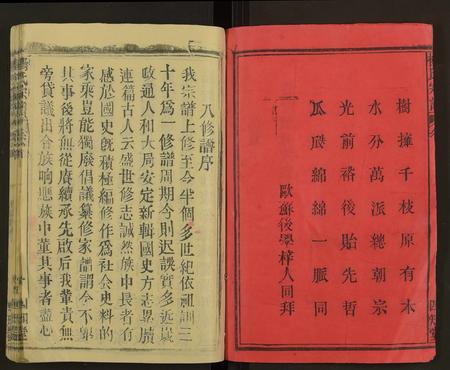 樹擁千枝原有木
水分萬派總朝宗
光前裕後貽先哲
瓜瓞綿綿一脈同
歐蘇後學梓人同拜
八修譜序
我宗譜上修至今半個多世紀依祖訓三
十年為一修譜周期今則迟誤實多近歲
政通人和大局安定新輯國史方志畧牘
連篇古人云盛世修志誠然族中長者有
感於國史旣積極編修作為社會史料的
家乘豈能獨廢倡議纂修家譜謂今不舉
其事後將無從賡續承先啟后我輩責無
旁貸議出合族响應族中董其事者盡心